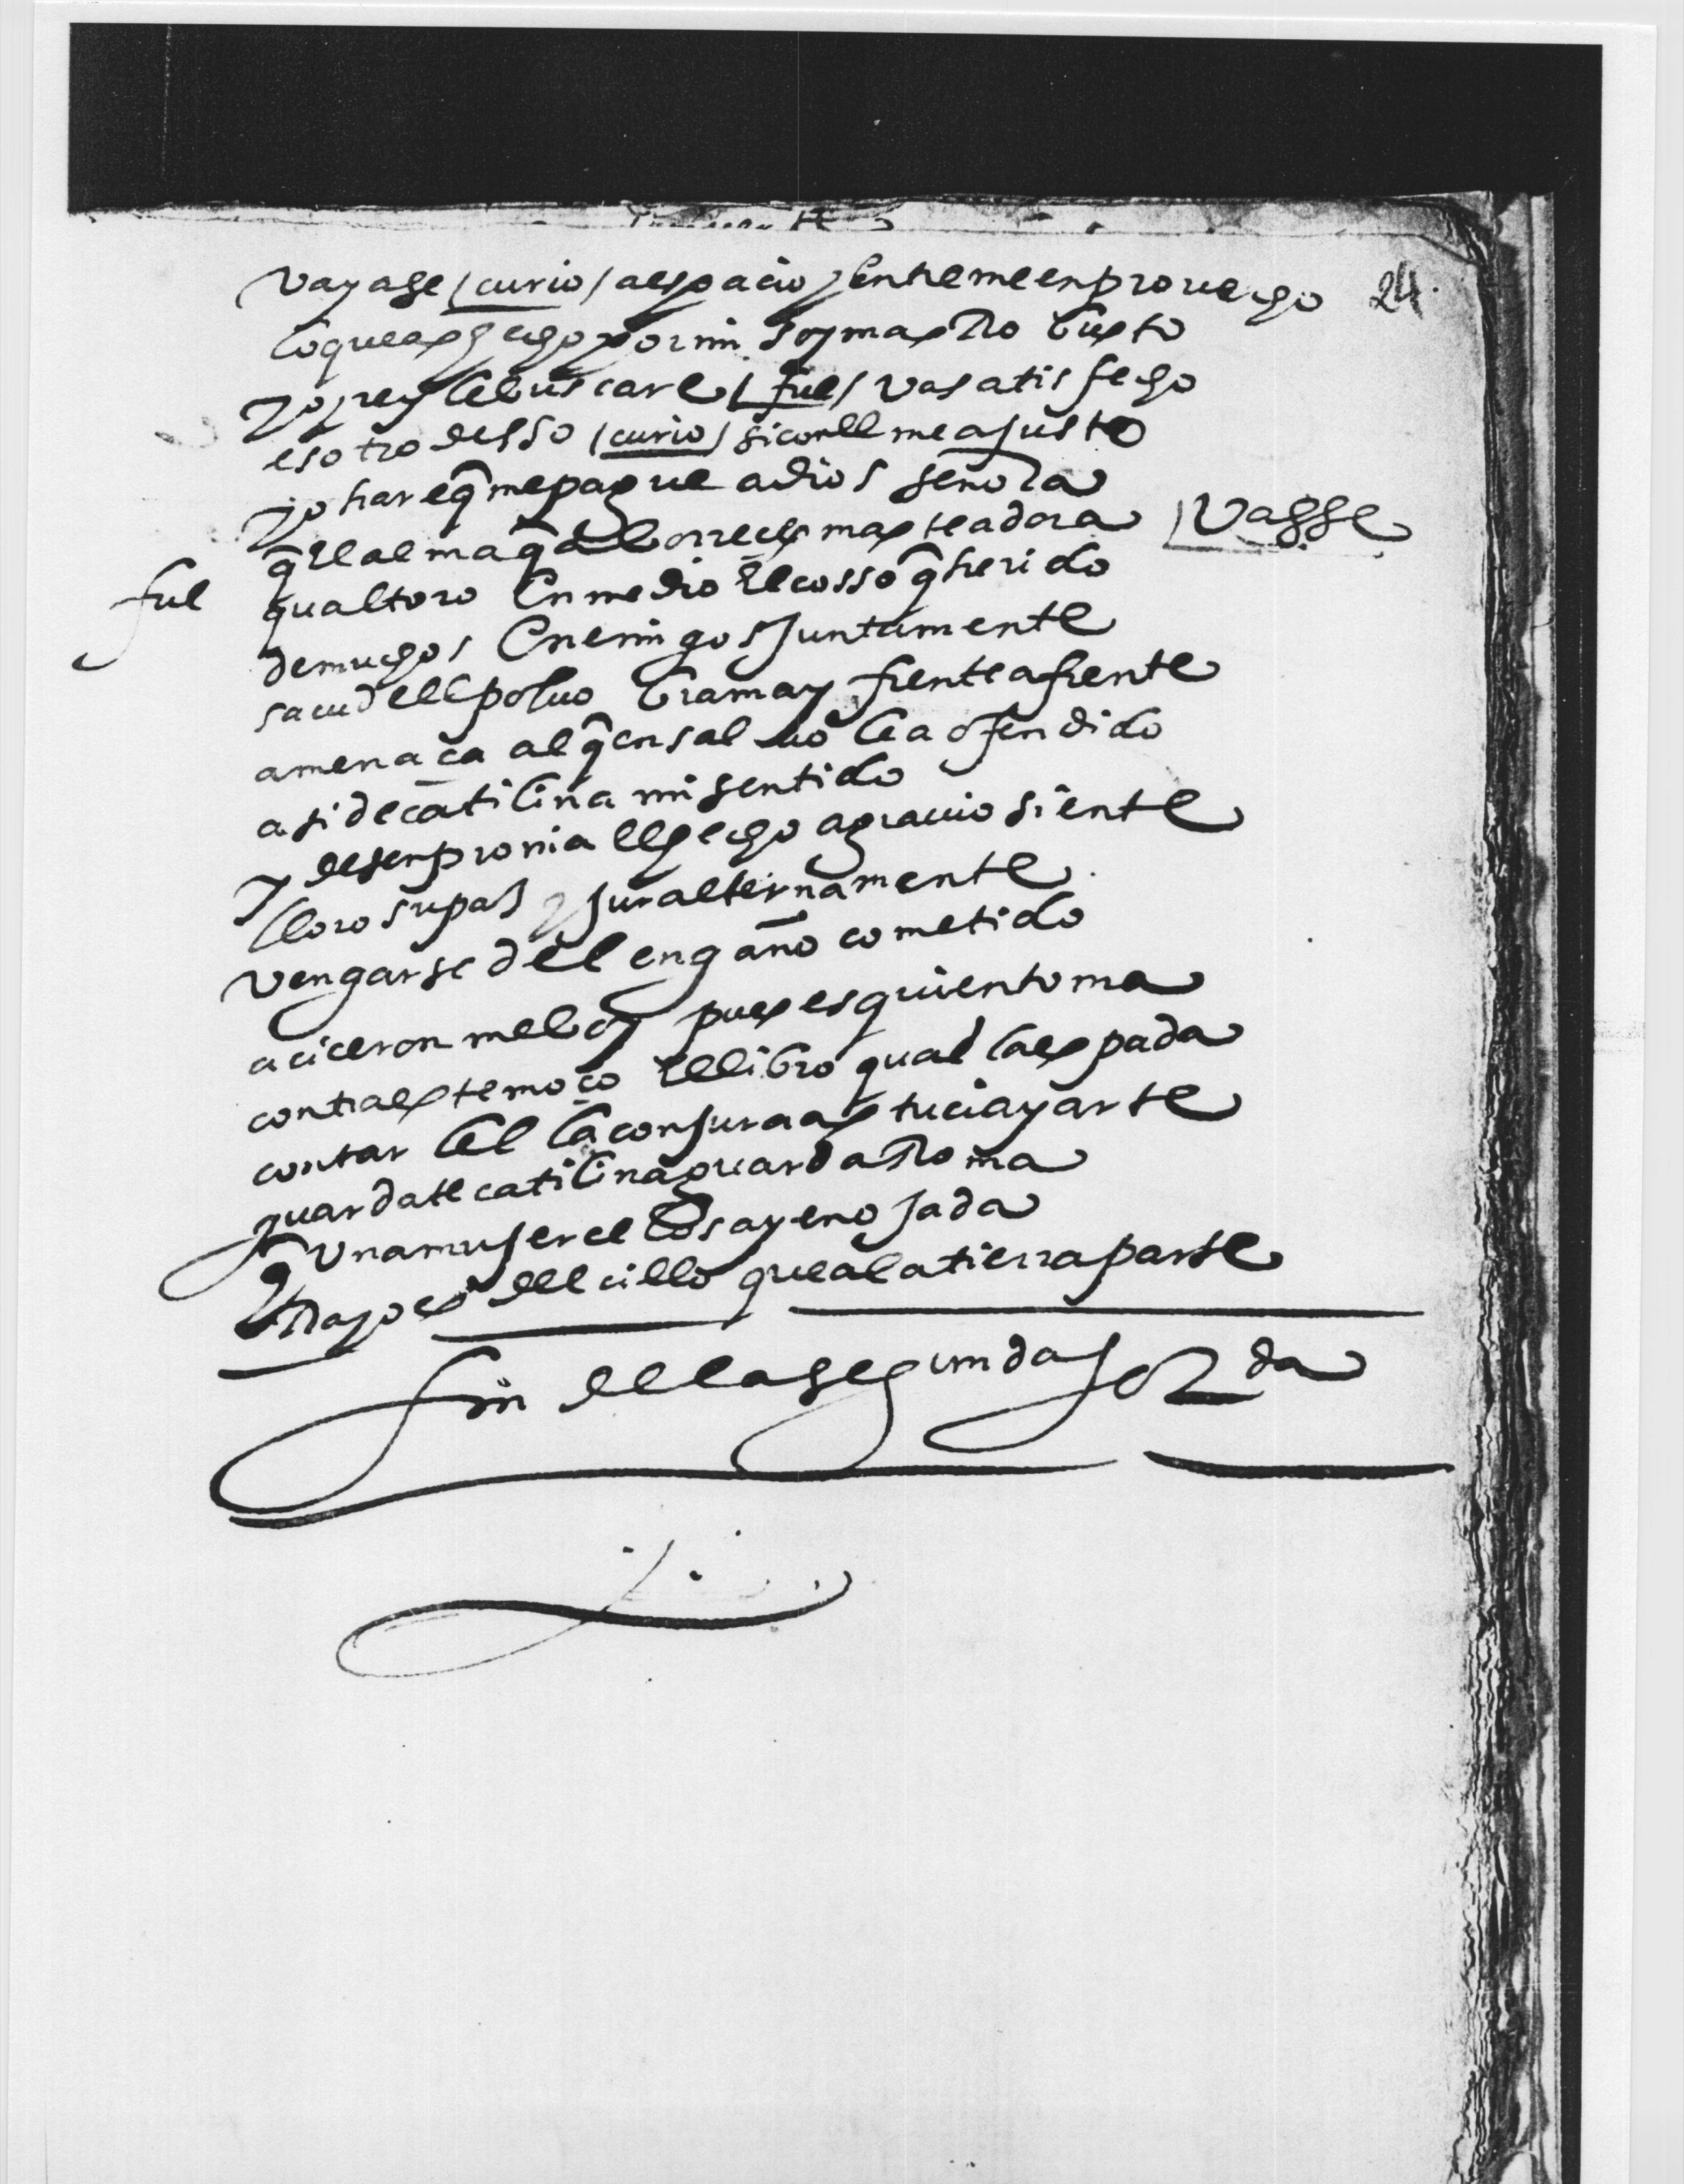 vayase / curio / aespacio y entremeenprouecho 24
loqueaehecho por mi soy maestro
yo yrey lebuscare / ful / vasatisfecho
esotrodesso / curio / siconel meajusto
yo hare q̃ mepague adios señora
q̃ el alma q̃ aborreces mas teadora / Vasse
ful qual toro en medio el cosso q̃ herido
demuchos enemigos Juntamente
sacudeelpoluo bramay frenteafrente
amenaça al q̃ en saluo lea ofendido
asidecatilina mi sentido
y desenpronia elpecho agrauio siente
lloro supas y Juralternamente
vengarse del engaño cometido
aciceron meboy pues esquientoma
contraestemoço ellibro qual laespada
contarlel laconjuraastuciayarte
guardate catilinaguardaRoma
q̃ vnamujercelosayenojada
Rayoes delcillo quealatierraparte
fin delasegundaJorda